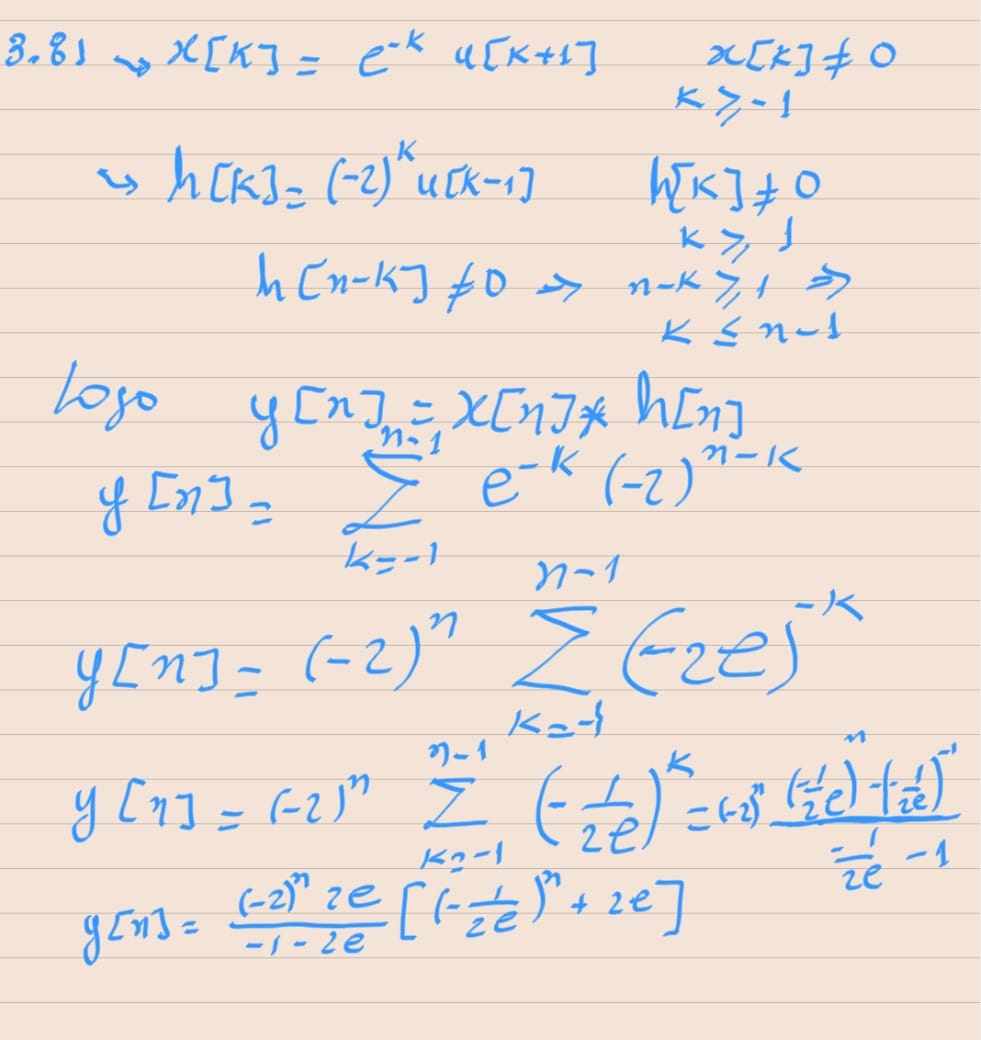 3.8) ↝ x[k] = e^{-k} u[k+1]   x[k] ≠ 0
k ≥ -1
↝ h[k] = (-2)^k u[k-1]   h[k] ≠ 0
k ≥ 1
h[n-k] ≠ 0 ⇒ n-k ≥ 1 ⇒
k ≤ n-1
Logo   y[n] = x[n] * h[n]
y[n] = \sum_{k=-1}^{n-1} e^{-k} (-2)^{n-k}
y[n] = (-2)^n \sum_{k=-1}^{n-1} (-2e)^{-k}
y[n] = (-2)^n \sum_{k=-1}^{n-1} (-\frac{1}{2e})^k = (-2)^n \frac{(-\frac{1}{2e})^n - (-\frac{1}{2e})^{-1}}{-\frac{1}{2e} - 1}
y[n] = \frac{(-2)^n 2e}{-1-2e} [(-\frac{1}{2e})^n + 2e]